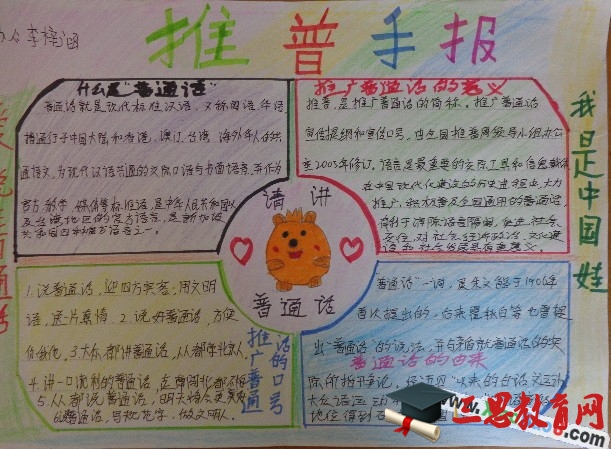 推普手报
办人李梓涵
什么是"普通话"
普通话就是现代标准汉语，又称国语、华语
普通行于中国大陆和香港、澳门、台湾、海外华人的共
通语文，为现代汉语共通的交际口语与书面语言，并作为
官方、教学、媒体等标准语，是中华人民共和国以
及台湾地区的官方语言，是新加坡
共和国四种官方语言之一。
推广普通话的意义
推普，是推广普通话的简称。推广普通话
宣传提纲和宣传口号，由全国推普周领导小组办公
室2003年修订。语言是最重要的交际工具和信息载体
在中国现代化建设的历史进程中，大力
推广、积极普及全国通用的普通话，
有利于消除语言隔阂，促进社会
交往，对社会经济政治、文化建设
和社会发展具有重要意义。
请讲
普通话
我是中国娃
1.说普通话，迎四方宾客；用文明
语，送一片真情。2.说好普通话，方便
你我他。3.大家都讲普通话，
4.讲一口流利的普通话，
5.人人都说普通话，
普通话，写规范字，做文明人。
推广普通
话的口号
"普通话"一词，是朱文熊于1906年
首次提出的，后来瞿秋白等也曾提
出"普通话"的说法，并与茅盾就普通话的实
普通话的由来
际所指展开争论。经"五四"以来的白话文运动
大众语运动
地位得到
三思教育网